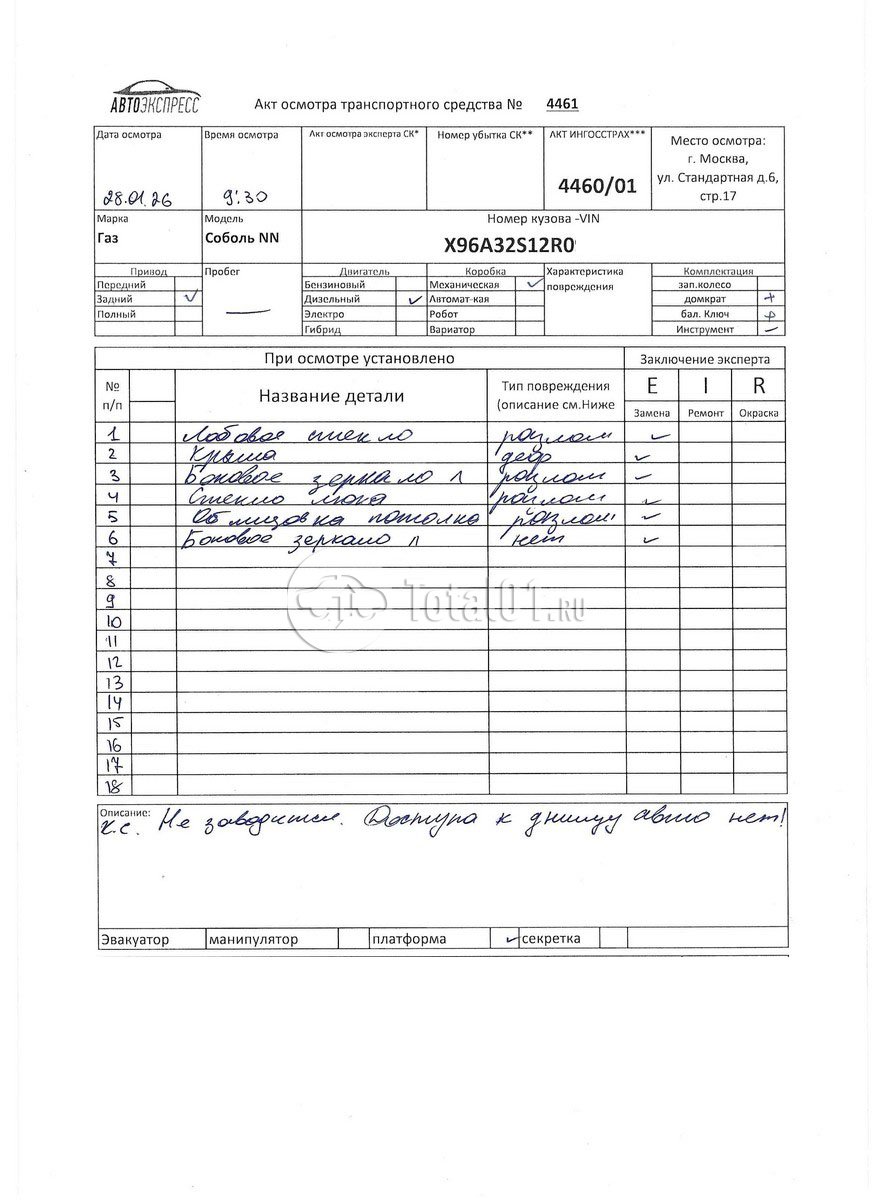 АВТОЭКСПРЕСС
Акт осмотра транспортного средства № 4461
Дата осмотра Время осмотра Акт осмотра эксперта СК* Номер убытка СК** АКТ ИНГОССТРАХ*** Место осмотра:
г. Москва,
28.01.26 9:30 4460/01 ул. Стандартная д.6,
стр.17
Марка Модель Номер кузова -VIN
Газ Соболь NN X96A32S12R0
Привод Пробег Двигатель Коробка Характеристика Комплектация
Передний Бензиновый Механическая ✓ повреждения зап.колесо
Задний ✓ — Дизельный ✓ Автомат-кая домкрат +
Полный Электро Робот бал. Ключ +
Гибрид Вариатор Инструмент —
При осмотре установлено Заключение эксперта
№ п/п Название детали Тип повреждения (описание см.Ниже E I R
Замена Ремонт Окраска
1 Лобовое стекло разлом ✓
2 Крыша деф ✓
3 Боковое зеркало л разлом ✓
4 Стекло люка разлом ✓
5 Облицовка потолка разлом ✓
6 Боковое зеркало п нет ✓
7
8
9
10
11
12
13
14
15
16
17
18
Total01.RU
Описание:
к.с. Не заводится. Доступа к днищу авто нет!
Эвакуатор манипулятор платформа ✓ секретка